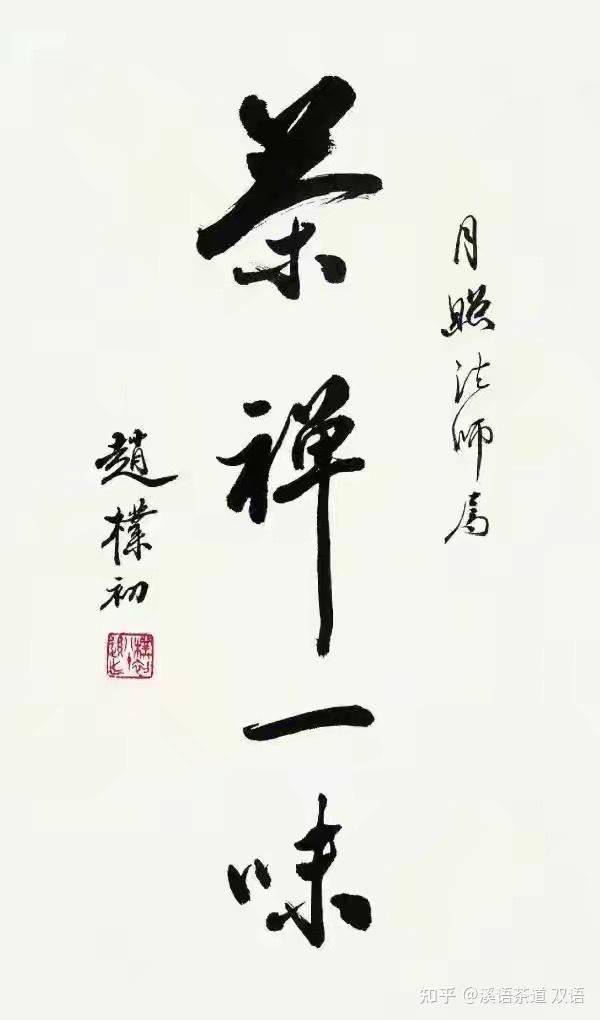 月照法师属
茶禅一味
趙樸初
知乎 @溪语茶道 双语